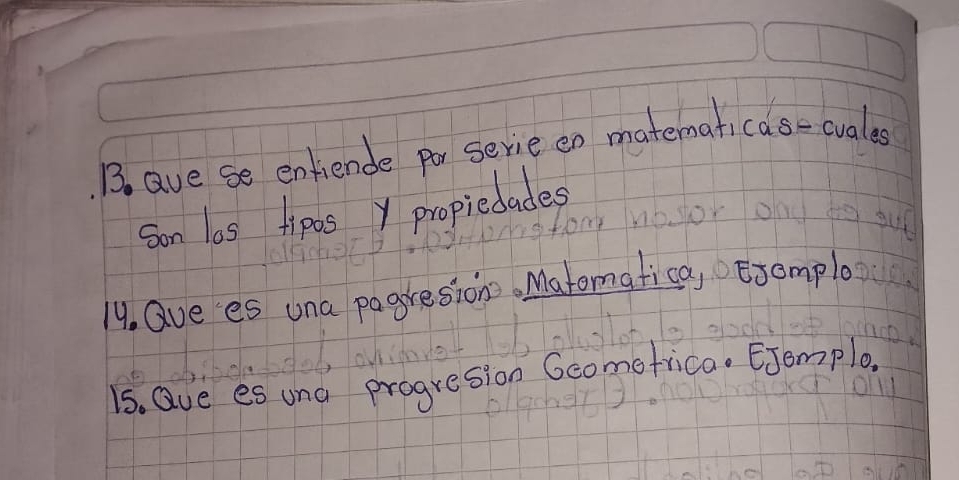 13. Que se entiende por serie en matematicas - cuales
Son los tipos y propiedades
14. Que es una pagresion Matematica, Ejemplo
15. Que es una progresion Geometrica. Ejemplo.